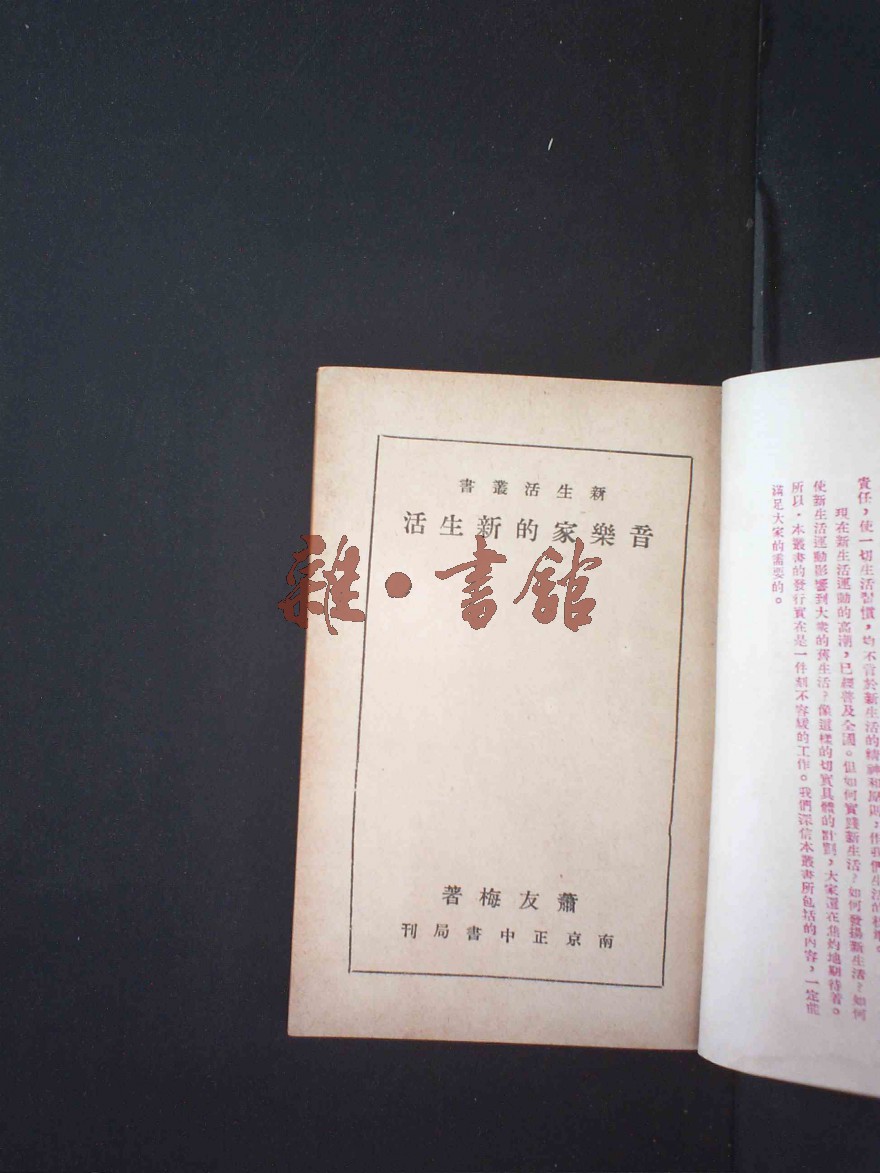 新生活叢書
音樂家的新生活
蕭友梅著
南京正中書局刊
雜·書館
責任，使一切生活習慣，均不背於新生活的精神和原則，作我們生活的標準。
現在新生活運動的高潮，已經普及全國。但如何實踐新生活？如何發揚新生活？如何
使新生活運動影響到大衆的舊生活？像這樣的切實具體的計劃，大家還在焦灼地期待着。
所以，本叢書的發行實在是一件刻不容緩的工作。我們深信本叢書所包括的內容，一定能
滿足大家的需要的。